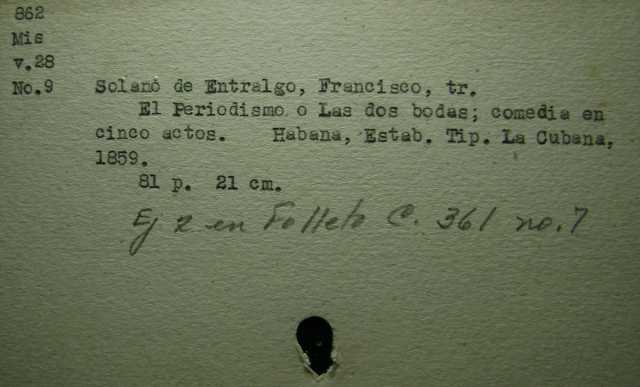 862
Mis
v.28
No.9 Solano de Entralgo, Francisco, tr.
El Periodismo o Las dos bodas; comedia en
cinco actos. Habana, Estab. Tip. La Cubana,
1859.
81 p. 21 cm.
Ej 2 en Folleto C. 361 no.7